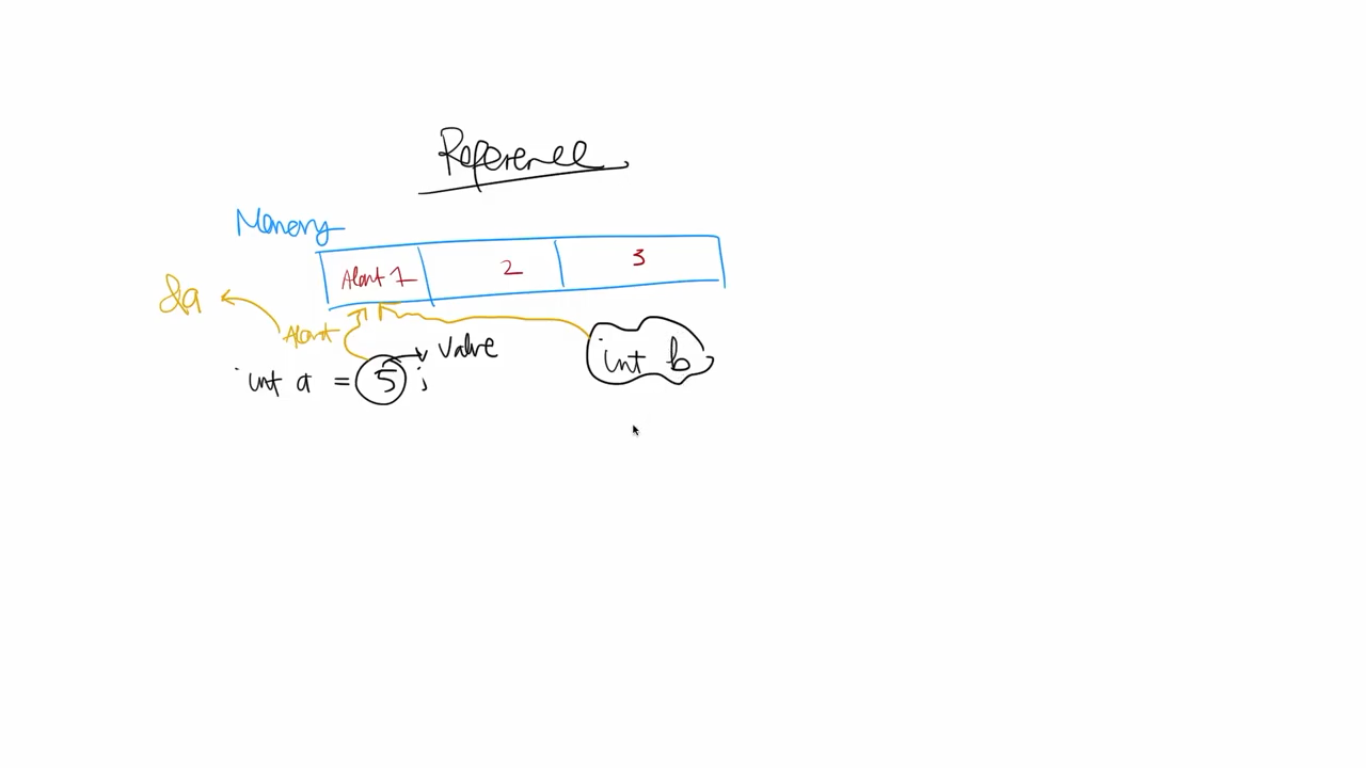 Reference
Memory
Alamat 1 2 3
&a
Alamat
value
int a = 5 ;
int b